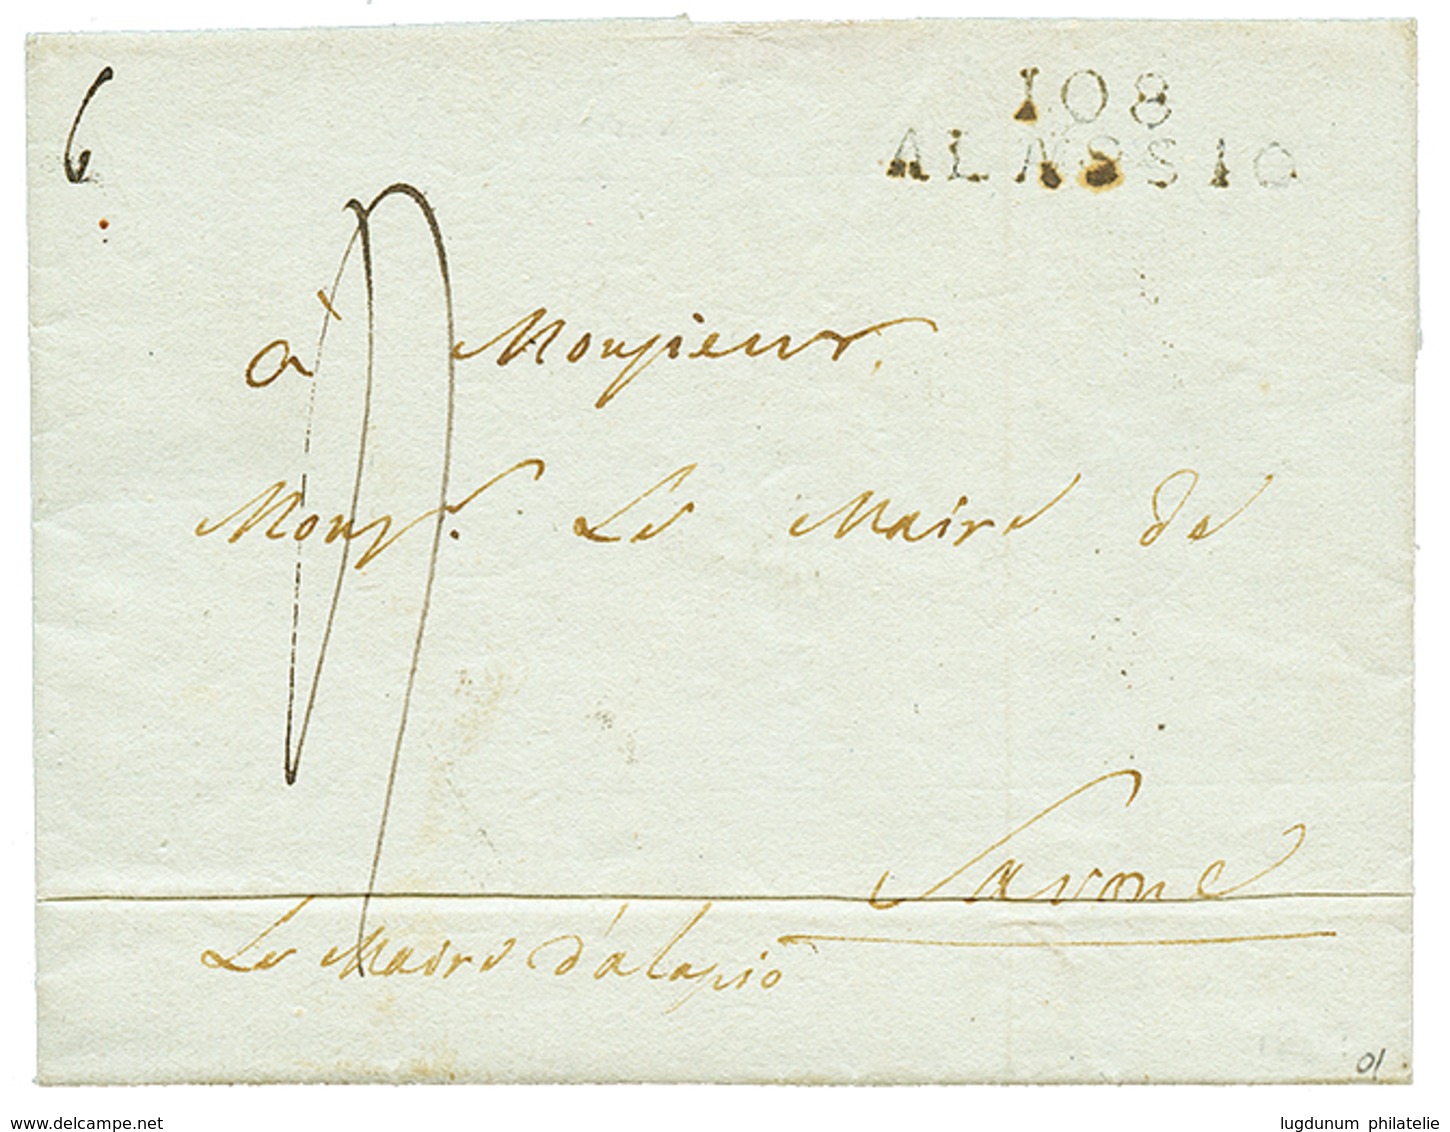 6
108
ALASSIO
à Monsieur
Mons.r Le Maire de
Savone
Le Maire d'alassio
01
www.delcampe.net
lugdunum philatelie